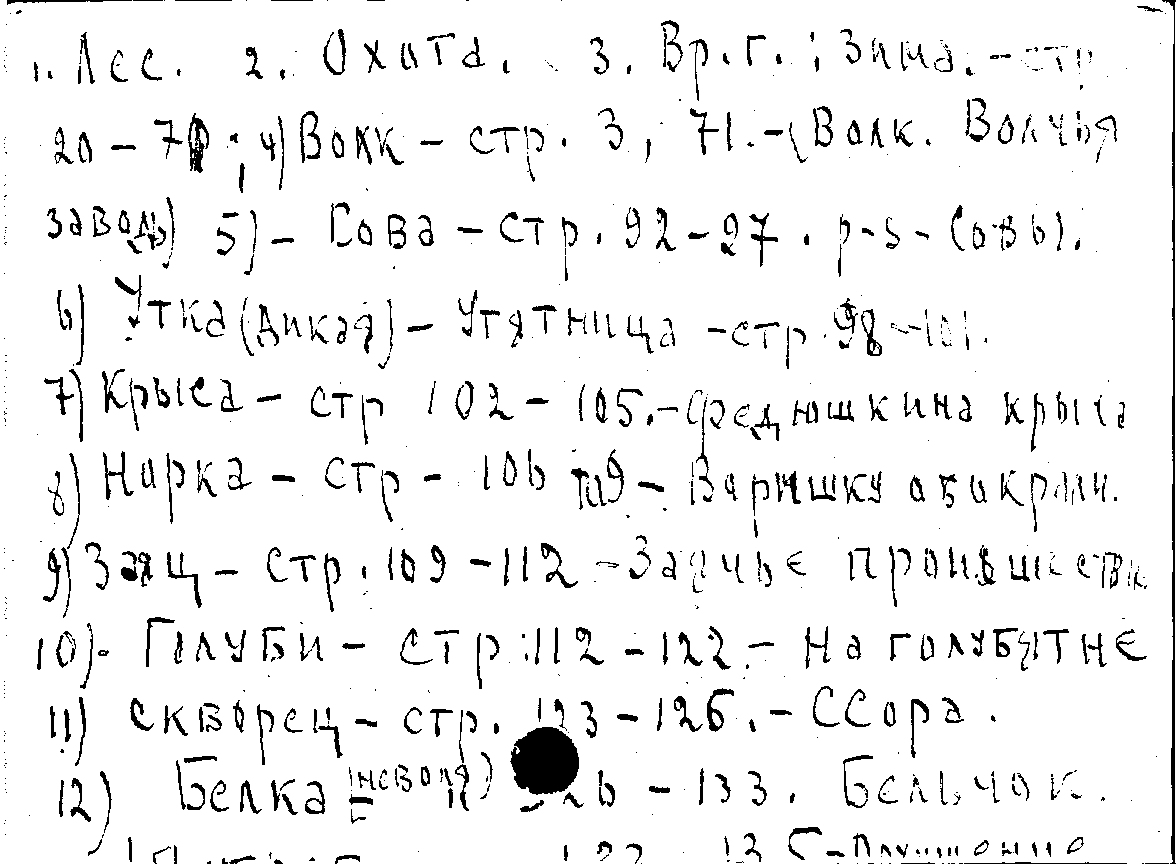 1. Лес. 2. Охота. 3. Вр. г. : Зима. - стр
20 - 70; 4) Волк - стр. 3, 71. - (Волк. Волчья
заводь) 5) - Сова - стр. 92 - 97. р-s - Совы.
6) Утка (дикая) - Утятница - стр. 98 - 101.
7) Крыса - стр 102 - 105. - Федюшкина крыса
8) Норка - стр - 106 109 - Варюшку обокрали.
9) Заяц - стр. 109 - 112 - Заячье
10). Голуби - стр. 112 - 122. - На голубятне
11) Скворец - стр. 123 - 126. - Ссора.
12) Белка (неволя) - 133. Бельчок.